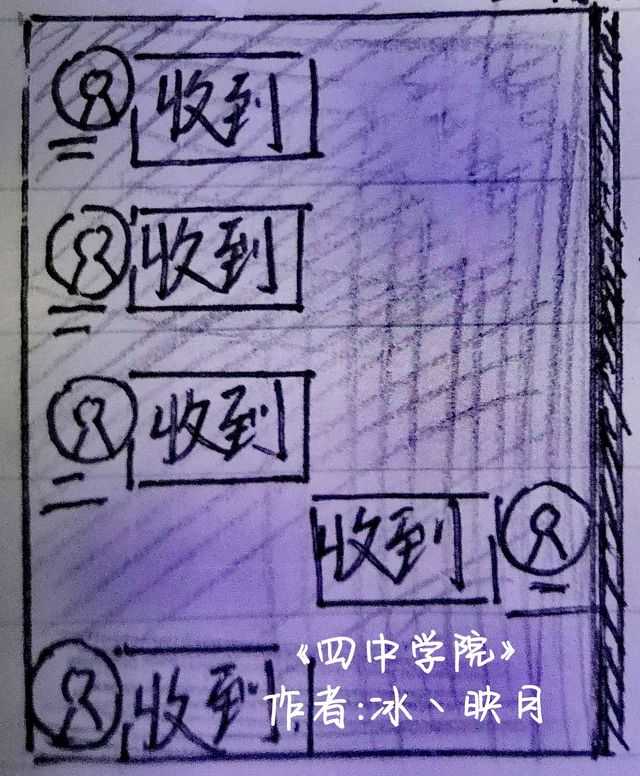 收到
收到
收到
收到
收到
《四中学院》
作者:冰丶映月